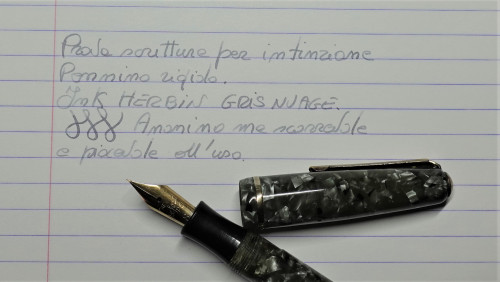 Prova scrittura per intinzione
Pennino rigido.
Ink HERBIN GRIS NUAGE.
Anonimo ma scorrevole
e piacevole all'uso.